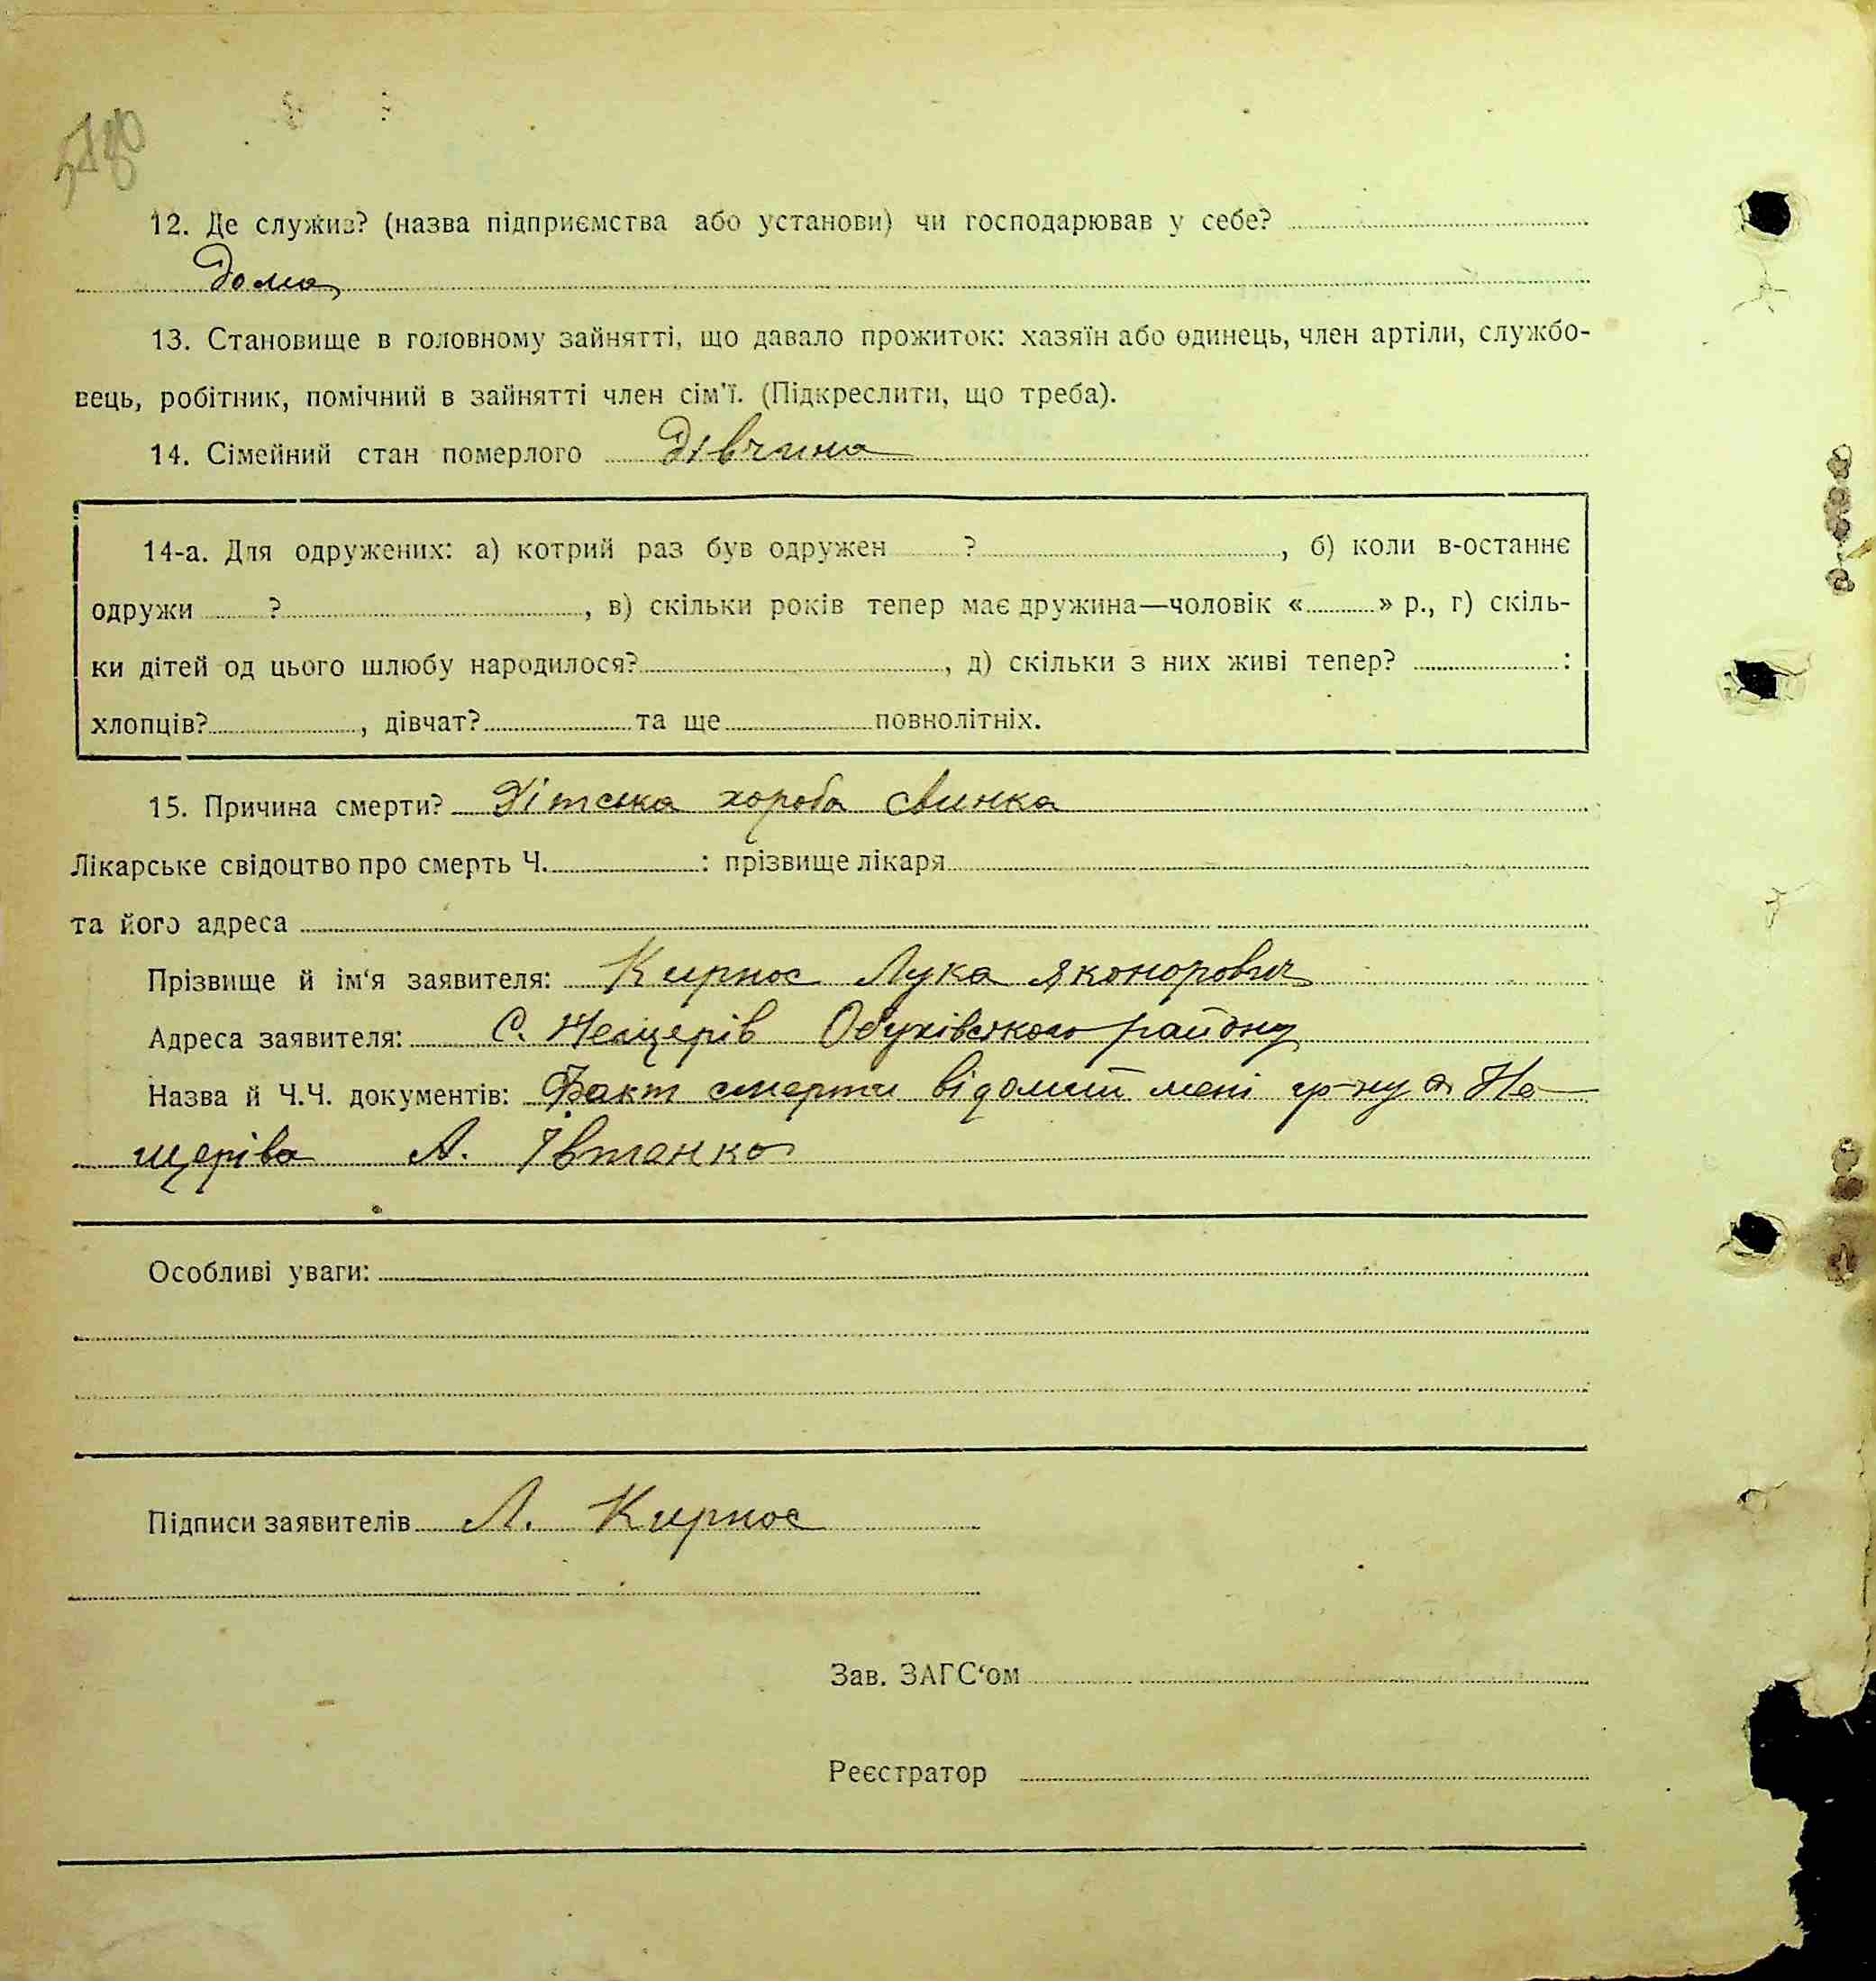 12. Де служив? (назва підприємства або установи) чи господарював у себе?
Дома
13. Становище в головному зайнятті, що давало прожиток: хазяїн або одинець, член артіли, службо-
вець, робітник, помічний в зайнятті член сім'ї. (Підкреслити, що треба).
14. Сімейний стан померлого Дівчина
14-а. Для одружених: а) котрий раз був одружен ?, б) коли в-останнє
одружи ?, в) скільки років тепер має дружина—чоловік « » р., г) скіль-
ки дітей од цього шлюбу народилося?, д) скільки з них живі тепер? :
хлопців?, дівчат? та ще повнолітніх.
15. Причина смерти? Дітська хороба свинка
Лікарське свідоцтво про смерть Ч. : прізвище лікаря
та його адреса
Прізвище й ім'я заявителя: Кирнос Лука
Адреса заявителя: С. Нещерів Обухівського району
Назва й Ч.Ч. документів: Факт смерти відомий мені гр-ну с. Не-
щерiва А. Івтанко
Особливі уваги:
Підписи заявителів Л. Кирнос
Зав. ЗАГС'ом
Реєстратор